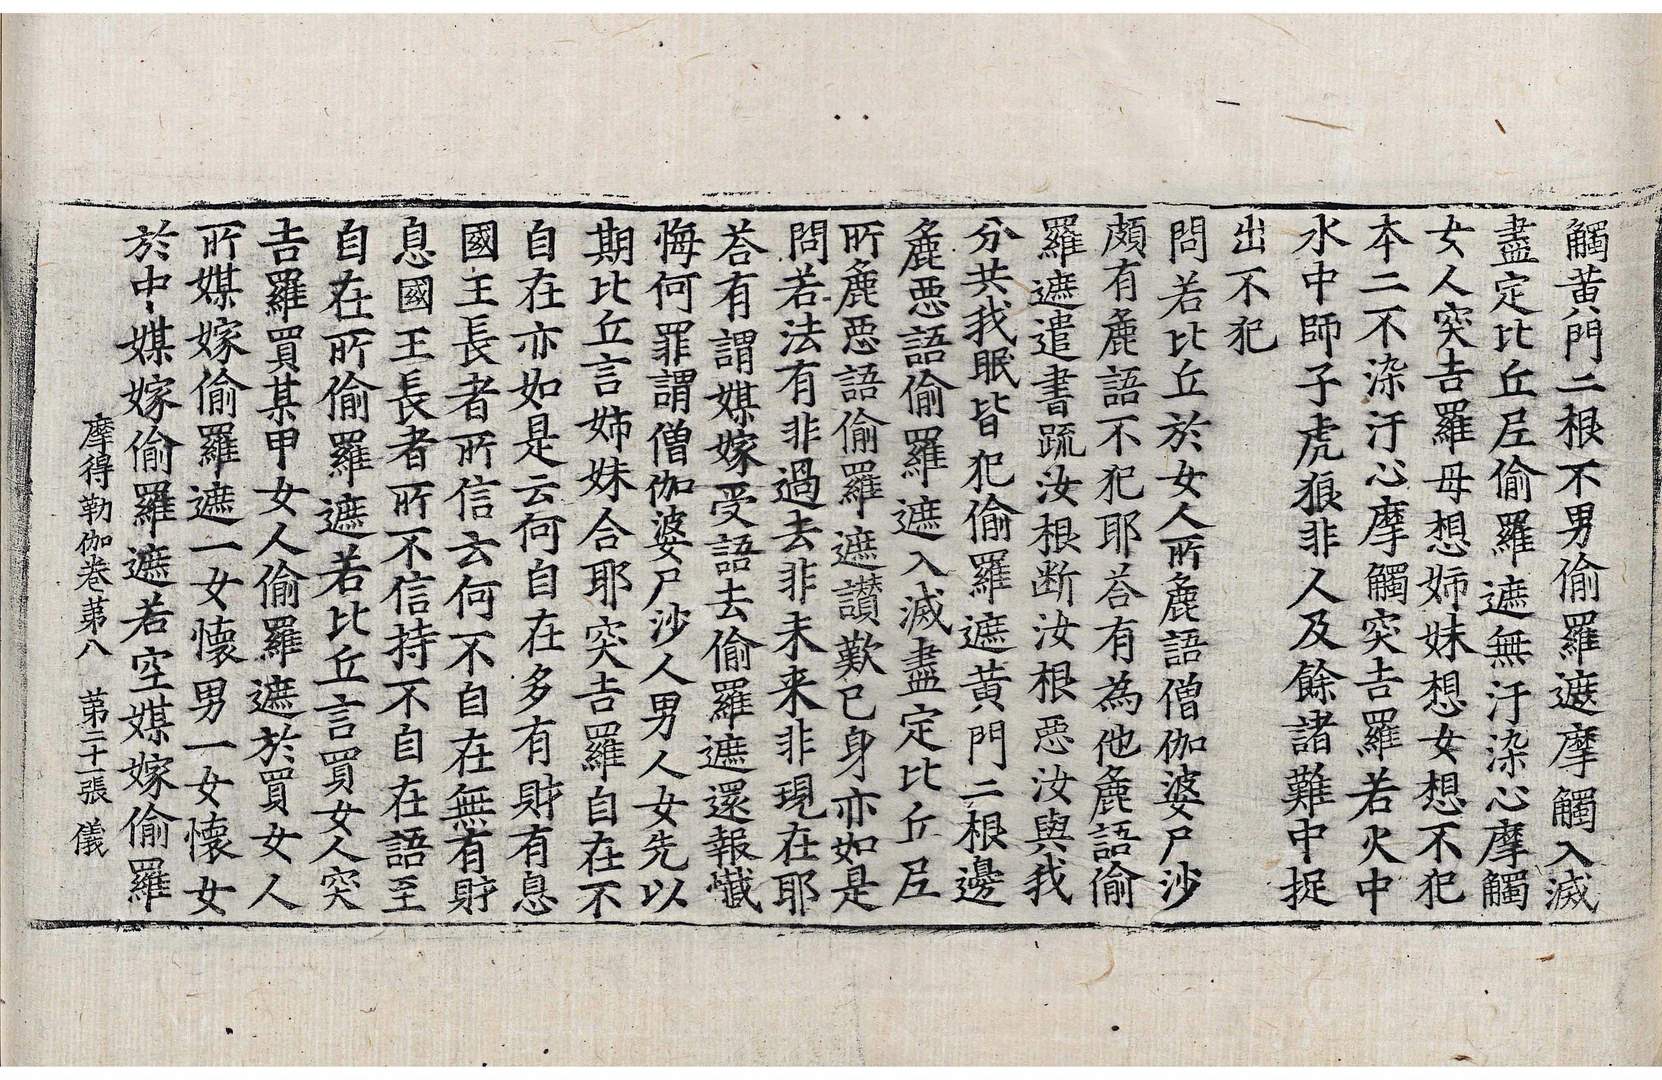 觸黃門二根不男偷羅遮摩觸入滅
盡定比丘尼偷羅遮無汙染心摩觸
女人突吉羅母想姉妹想女想不犯
本二不染汙心摩觸突吉羅若火中
水中師子虎狼非人及餘諸難中捉
出不犯
問若比丘於女人所麁語僧伽婆尸沙
頗有麁語不犯耶荅有為他麁語偷
羅遮遣書䟽汝根断汝根惡汝與我
分共我眠皆犯偷羅遮黃門二根邊
麁惡語偷羅遮入滅盡定比丘尼
所麁惡語偷羅遮讃歎已身亦如是
問若法有非過去非未来非現在耶
荅有謂媒嫁受語去偷羅遮還報懺
悔何罪謂僧伽婆尸沙人男人女先以
期比丘言姉妹合耶突吉羅自在不
自在亦如是云何自在多有財有息
國王長者所信云何不自在無有財
息國王長者所不信持不自在語至
自在所偷羅遮若比丘言買女人突
吉羅買某甲女人偷羅遮於買女人
所媒嫁偷羅遮一女懷男一女懷女
於中媒嫁偷羅遮若空媒嫁偷羅
摩得勒伽卷第八 第二十一張 儀